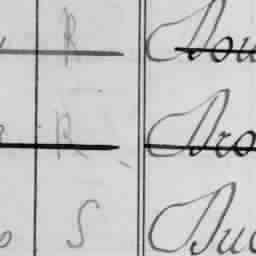 R Dou
R Dro
S Duc